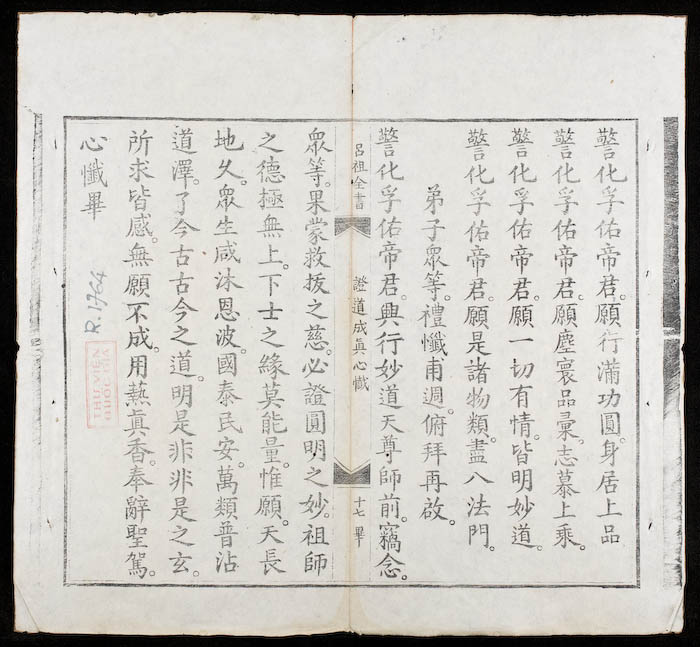 警化孚佑帝君。願行滿功圓。身居上品
警化孚佑帝君。願塵寰品彙。志慕上乘。
警化孚佑帝君。願一切有情。皆明妙道。
警化孚佑帝君。願是諸物類。盡入法門。
弟子眾等。禮懺甫週。俯拜再啟。
警化孚佑帝君。興行妙道天尊師前。竊念。
呂祖全書
證道成眞心懺
十七 畢
眾等。果蒙救拔之慈。必證圓明之妙。祖師
之德極無上。下士之緣莫能量。惟願。天長
地久。眾生咸沐恩波。國泰民安。萬類普沾
道澤。了今古古今之道。明是非非是之玄。
所求皆感。無願不成。用爇眞香。奉辭聖駕。
心懺畢
R.1764
THƯ VIỆN
QUỐC GIA